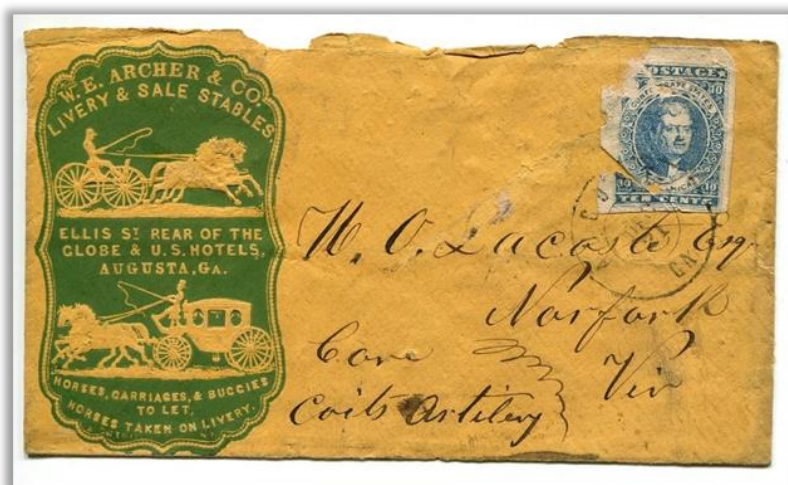 W. E. ARCHER & CO.
LIVERY & SALE STABLES
ELLIS ST REAR OF THE
GLOBE & U.S. HOTELS,
AUGUSTA, GA.
HORSES, CARRIAGES, & BUGGIES
TO LET.
HORSES TAKEN ON LIVERY.
POSTAGE
10
10 10
TEN CENTS
GA
W. O. Lacoste Esq
Norfork
Vir
Care
Coits Artilery